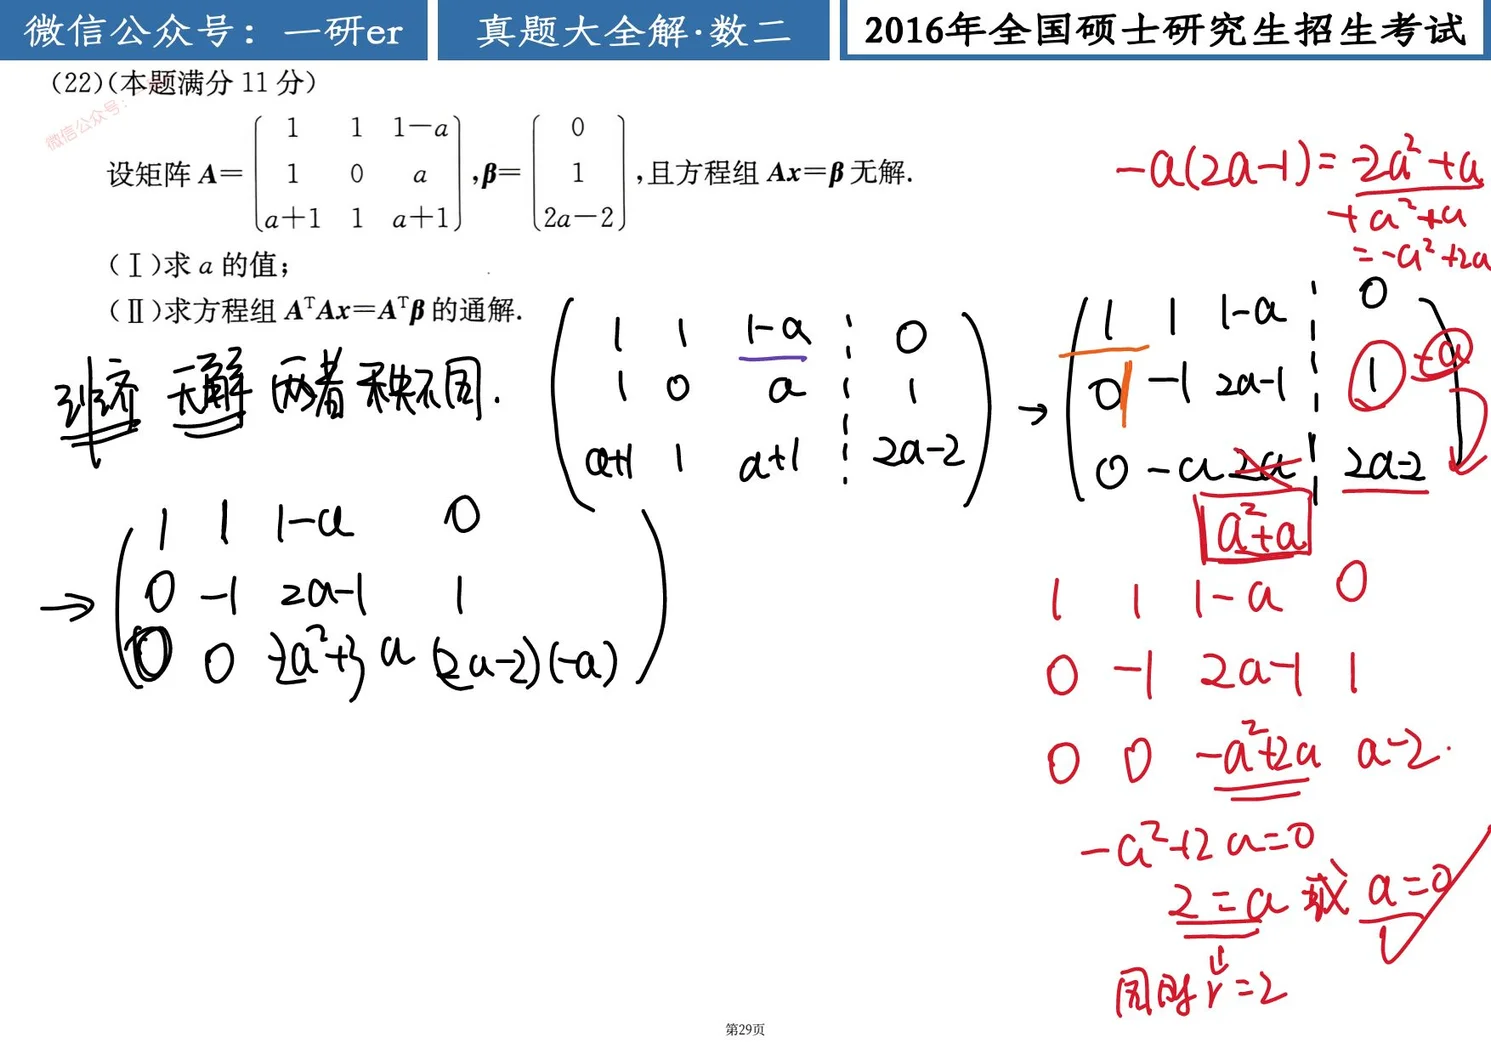 微信公众号：一研er
真题大全解·数二
2016年全国硕士研究生招生考试
(22)(本题满分 11 分)
微信公众号：
设矩阵 A= ( 1 1 1-a ; 1 0 a ; a+1 1 a+1 ), β= ( 0 ; 1 ; 2a-2 ), 且方程组 Ax=β 无解.
(Ⅰ)求 a 的值;
(Ⅱ)求方程组 AᵀAx=Aᵀβ 的通解.
-a(2a-1)=-2a²+a
+a²+a
=-a²+2a
无解 两者秩不同.
1 1 1-a 0
1 0 a 1
a+1 1 a+1 2a-2
→
1 1 1-a 0
0 -1 2a-1 1 +a
0 -a 2a 2a-2
a²+a
→
1 1 1-a 0
0 -1 2a-1 1
0 0 a (2a-2)(-a)
1 1 1-a 0
0 -1 2a-1 1
0 0 -a²+2a a-2.
-a²+2a=0
2=a 或 a=0
同时 r=2
第29页